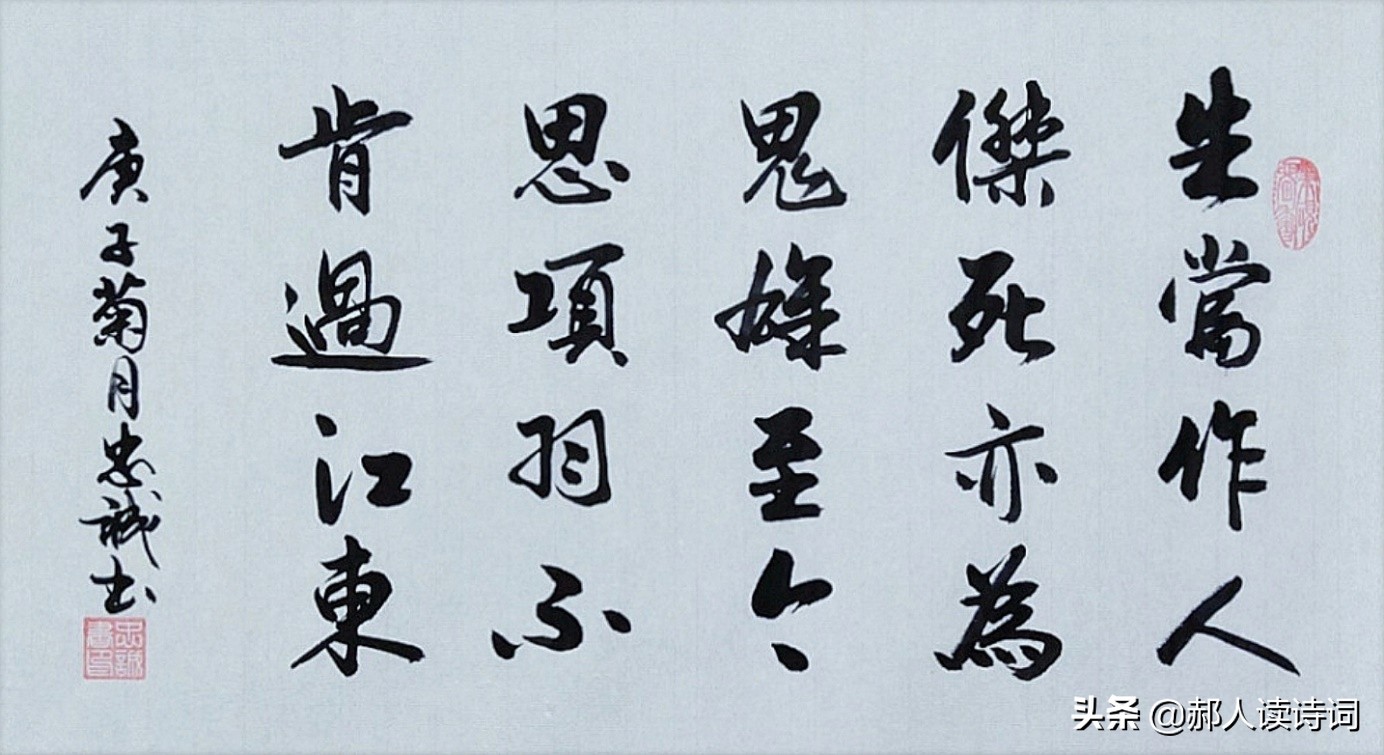 生當作人
傑死亦為
鬼雄至今
思項羽不
肯過江東
庚子菊月忠誠书
忠誠書印
头条 @郝人读诗词